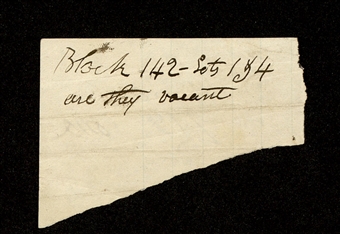 Block 142 - Lots 1 & 4
are they vacant